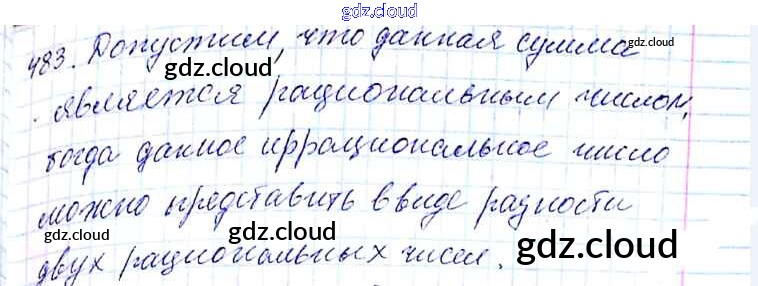 gdz.cloud
483. Допустим, что данная сумма
gdz.cloud
gdz.cloud
является рациональным числом,
gdz.cloud
тогда данное иррациональное число
можно представить в виде разности
gdz.cloud
gdz.cloud
gdz.cloud
двух рациональных чисел.